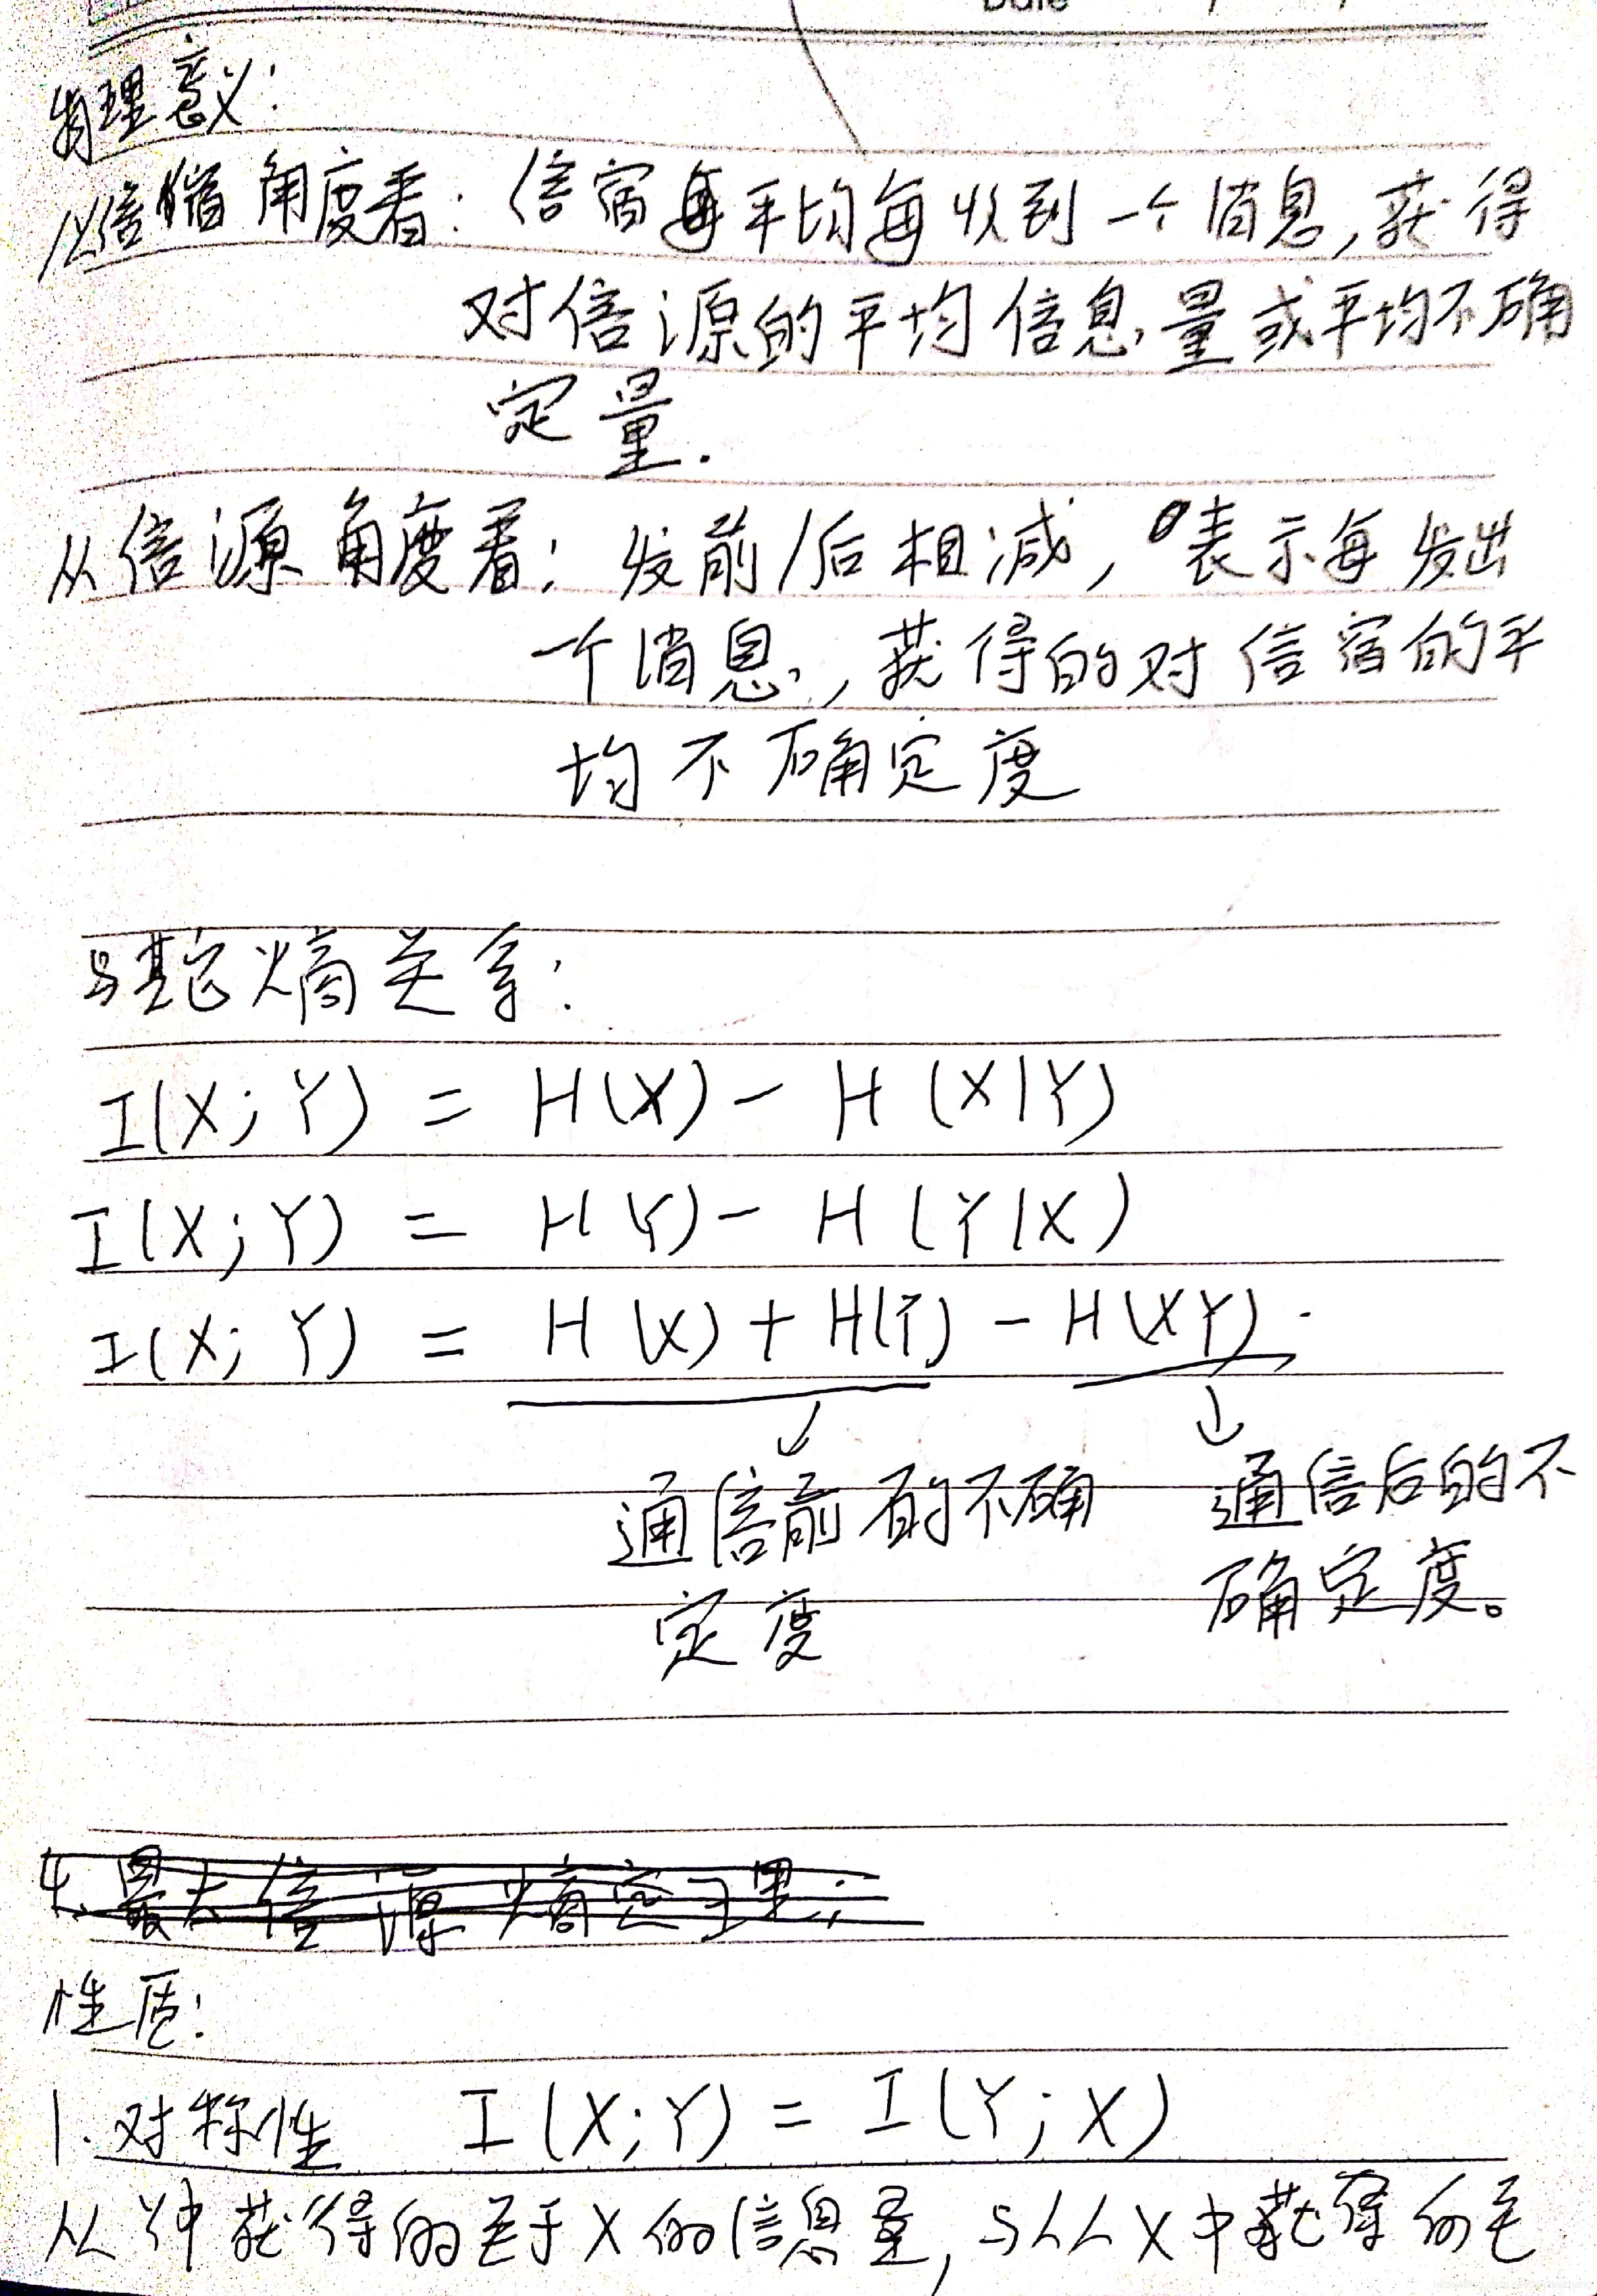 Date
物理意义:
从信宿角度看: 信宿每平均每收到一个消息,获得
对信源的平均信息量或平均不确
定量.
从信源角度看: 发前/后相减, 表示每发出
一个消息,获得的对信宿的平
均不确定度
与其它熵关系:
I(X; Y) = H(X) - H(X|Y)
I(X; Y) = H(Y) - H(Y|X)
I(X; Y) = H(X) + H(Y) - H(XY).
通信前的不确 通信后的不
定度 确定度。
4. 最大信源熵定理:
性质:
1. 对称性 I(X;Y) = I(Y;X)
从Y中获得的关于X的信息量, 与从X中获得的关